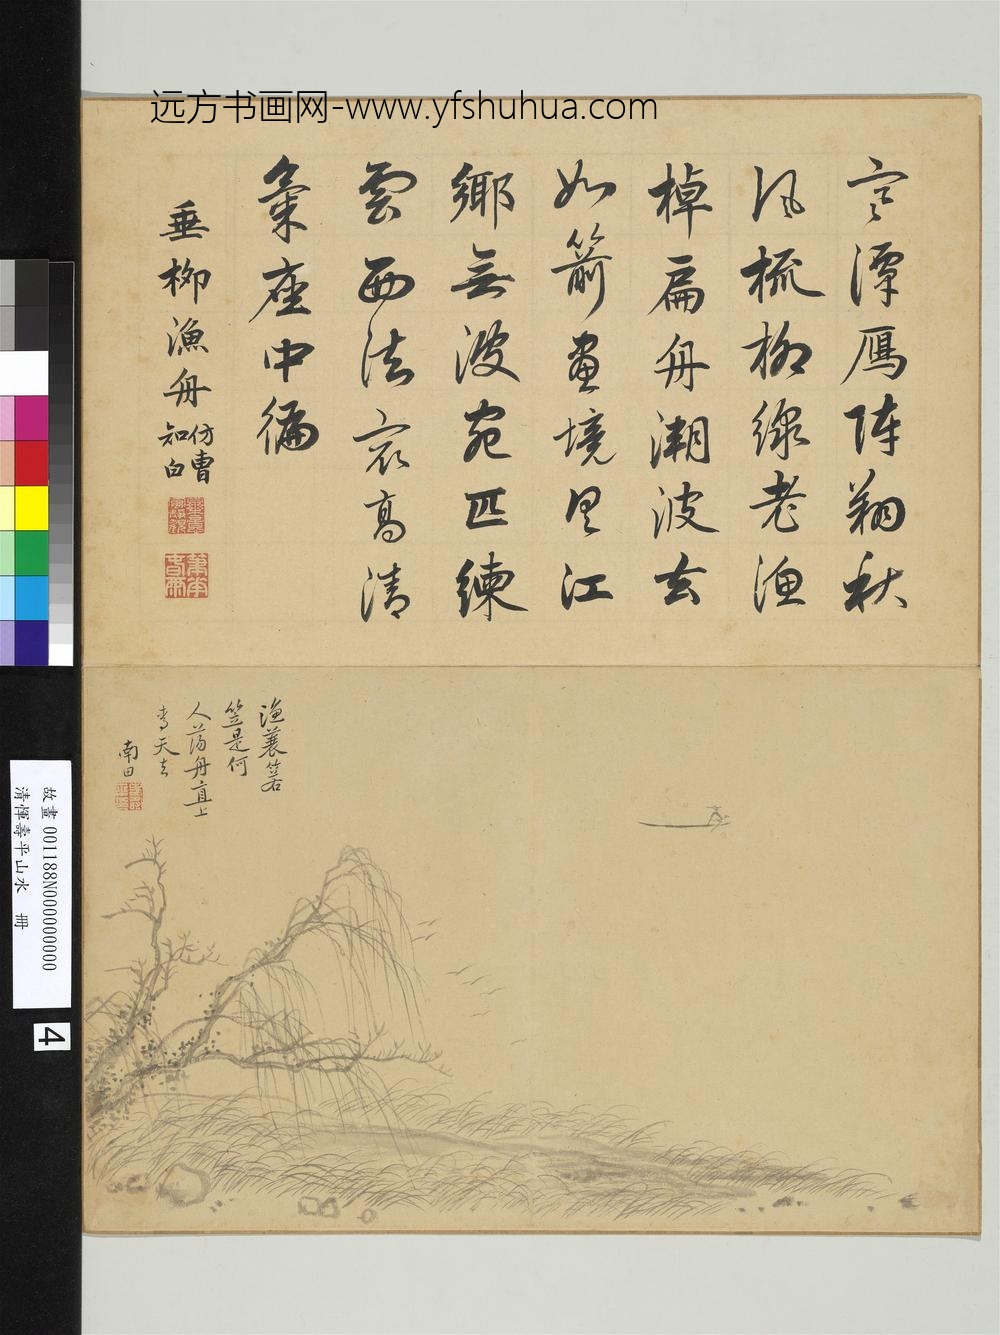 远方书画网-www.yfshuhua.com
寒潭鴈陣翔秋
風梳柳線老漁
棹扁舟溯波去
如箭畫境江
鄉無波宛匹練
雲西法㝡高清
氣座中徧
垂柳漁舟仿曹知白
漁蓑箬
笠是何
人蕩舟直上
青天去
南田
故畫 001188N000000000
清惲壽平山水 冊
4